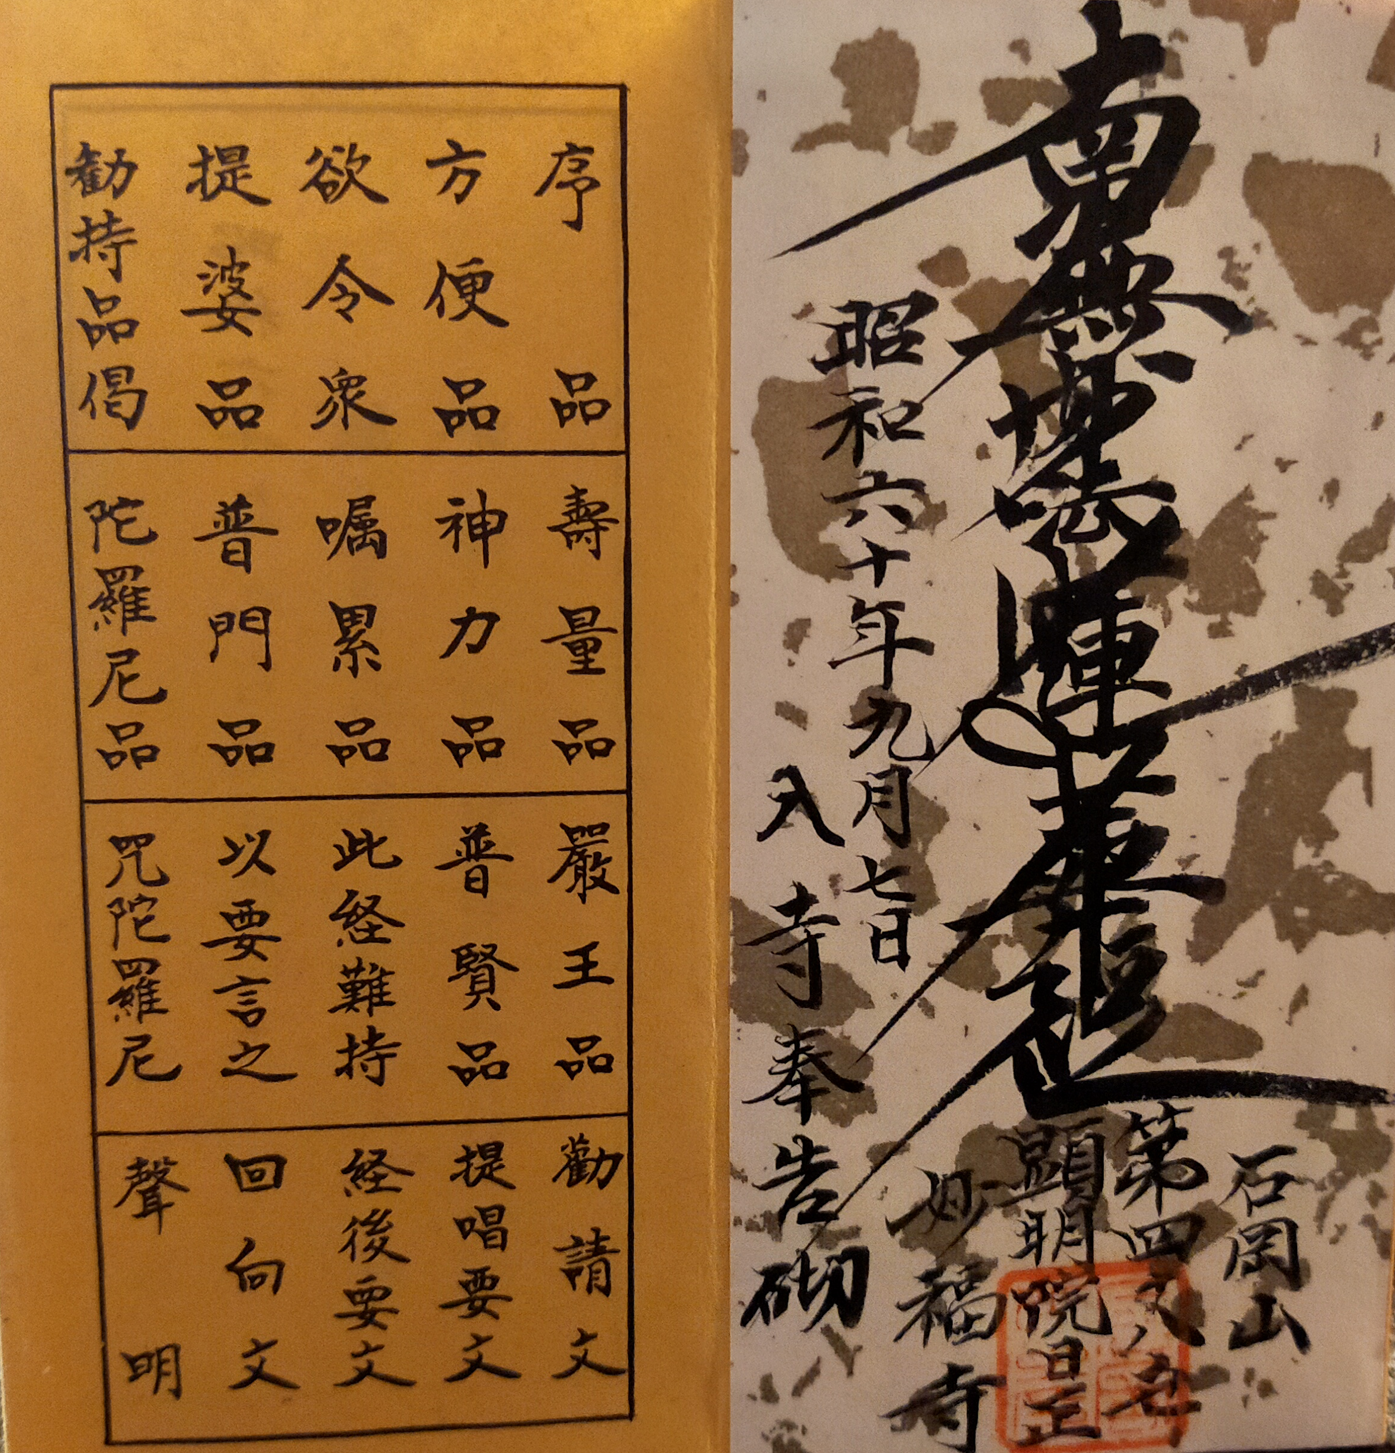 南無妙法蓮華経
石岡山
第四
顕明院日正
妙福寺
昭和六十年九月七日
入寺奉告砌
序品
方便品
欲令衆
提婆品
勧持品偈
壽量品
神力品
嘱累品
普門品
陀羅尼品
嚴王品
普賢品
此経難持
以要言之
咒陀羅尼
勸請文
提唱要文
経後要文
回向文
聲明